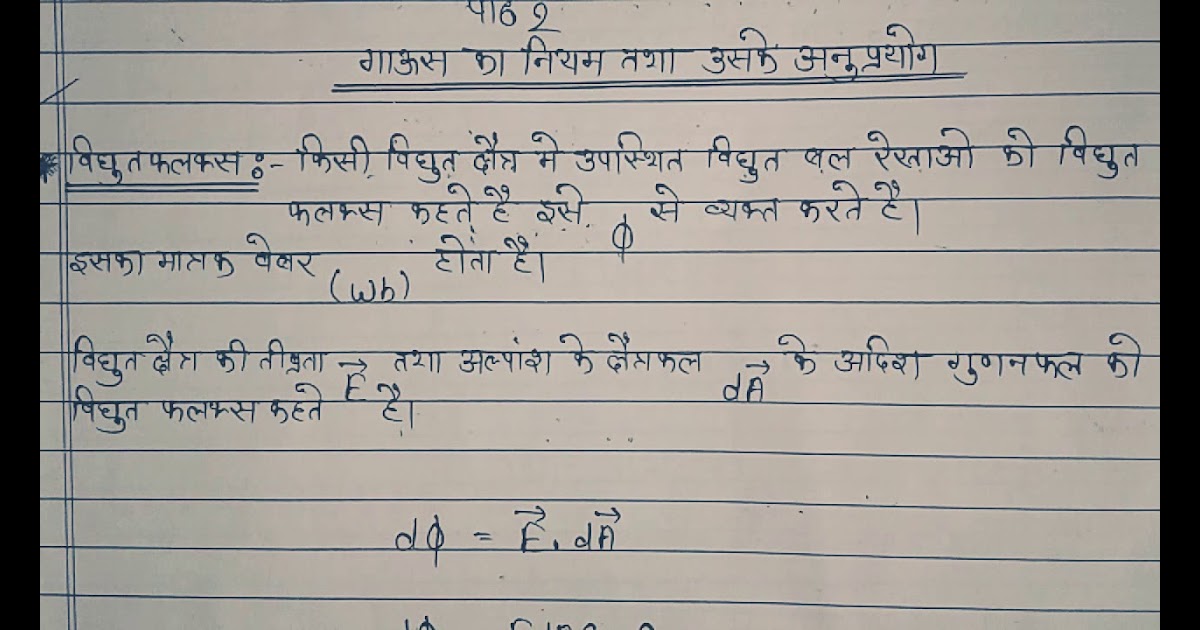 पाठ 2
गाऊस का नियम तथा उसके अनुप्रयोग
विघुत फलकस :- किसी विघुत क्षेत्र मे उपस्थित विघुत बल रेखाओ को विघुत
फलक्स कहते है इसे ϕ से व्यक्त करते है।
इसका मात्रक वेबर (Wb) होता है।
विघुत क्षेत्र की तीव्रता E⃗ तथा अल्पांश के क्षेत्रफल dA⃗ के अदिश गुणनफल को
विघुत फलक्स कहते है।
dϕ = E⃗ . dA⃗